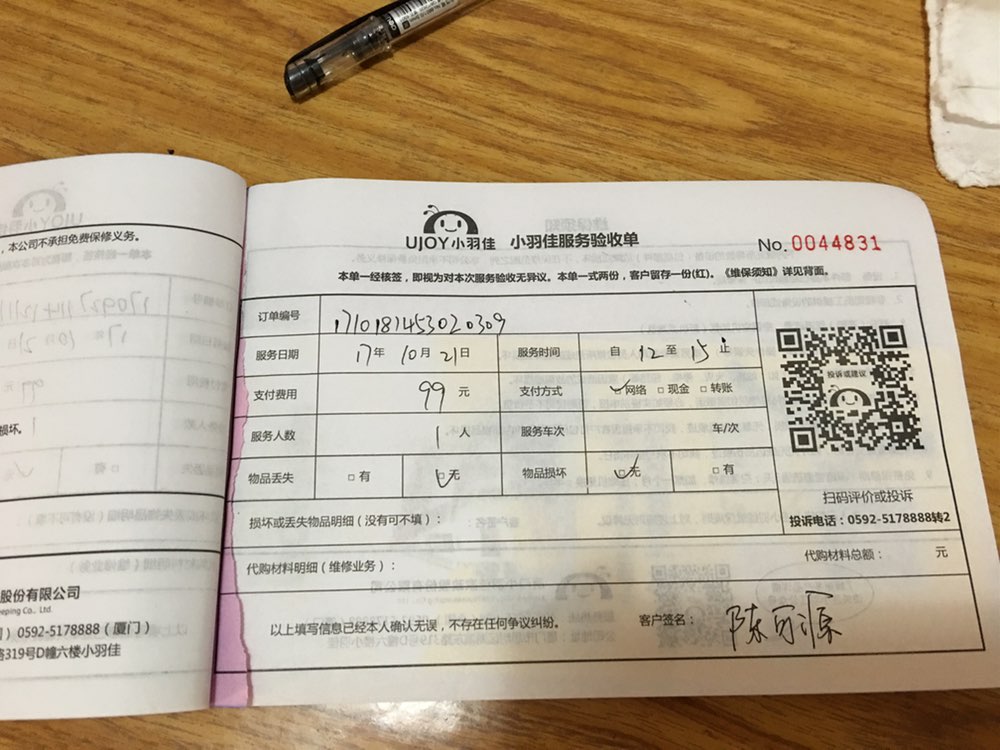 本公司不承担免费保修义务。
损坏。
股份有限公司
eeping Co., Ltd.
0592-5178888(厦门)
路319号D幢六楼小羽佳
UJOY小羽佳 小羽佳服务验收单
No.0044831
本单一经核签,即视为对本次服务验收无异议。本单一式两份,客户留存一份(红)。《维保须知》详见背面。
订单编号 1710181453020309
服务日期 17年 10月 21日 服务时间 自 12 至 15 止
支付费用 99 元 支付方式 ☑网络 □现金 □转账
服务人数 1 人 服务车次 车/次
物品丢失 □有 ☑无 物品损坏 ☑无 □有
投诉或建议
扫码评价或投诉
投诉电话:0592-5178888转2
损坏或丢失物品明细(没有可不填):
代购材料明细(维修业务): 代购材料总额: 元
以上填写信息已经本人确认无误,不存在任何争议纠纷。 客户签名: 陈可源